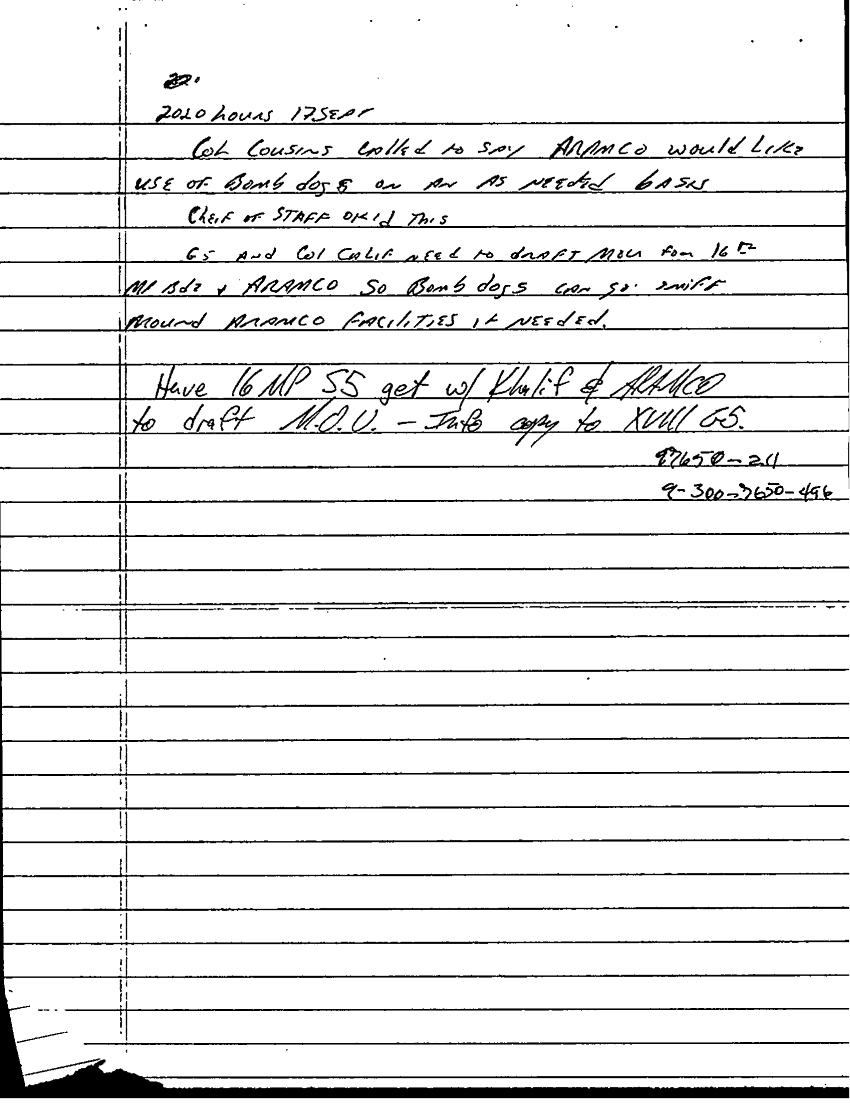 22.
2020 hours 17 SEPT
Col Cousins called to say ARAMCO would like
use of Bomb dogs on an as needed basis
Cheif of Staff OK'd this
G5 and Col Calif need to draft MOU for 16th
MP Bde & ARAMCO so Bomb dogs can go sniff
around ARAMCO facilities if needed.
Have 16 MP S5 get w/ Khalif & ARAMCO
to draft M.O.U. - Info copy to XVIII G5.
97650-211
9-300-7650-496